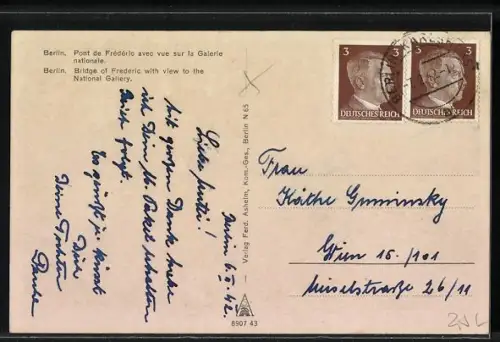 Berlin. Pont de Frédéric avec vue sur la Galerie
nationale.
Berlin. Bridge of Frederic with view to the
National Gallery.
Berlin 6.V.42.
Liebe Mutti!
Mit großem Dank habe
ich Dein Paket erhalten
Brief folgt.
Es grüßt u. küsst
Dich
Deine Tochter
Verlag Ferd. Ashelm, Kom.-Ges., Berlin N 65
8907 43
3
DEUTSCHES REICH
3
DEUTSCHES REICH
Frau
Käthe Guminsky
Wien 15./101
26/11